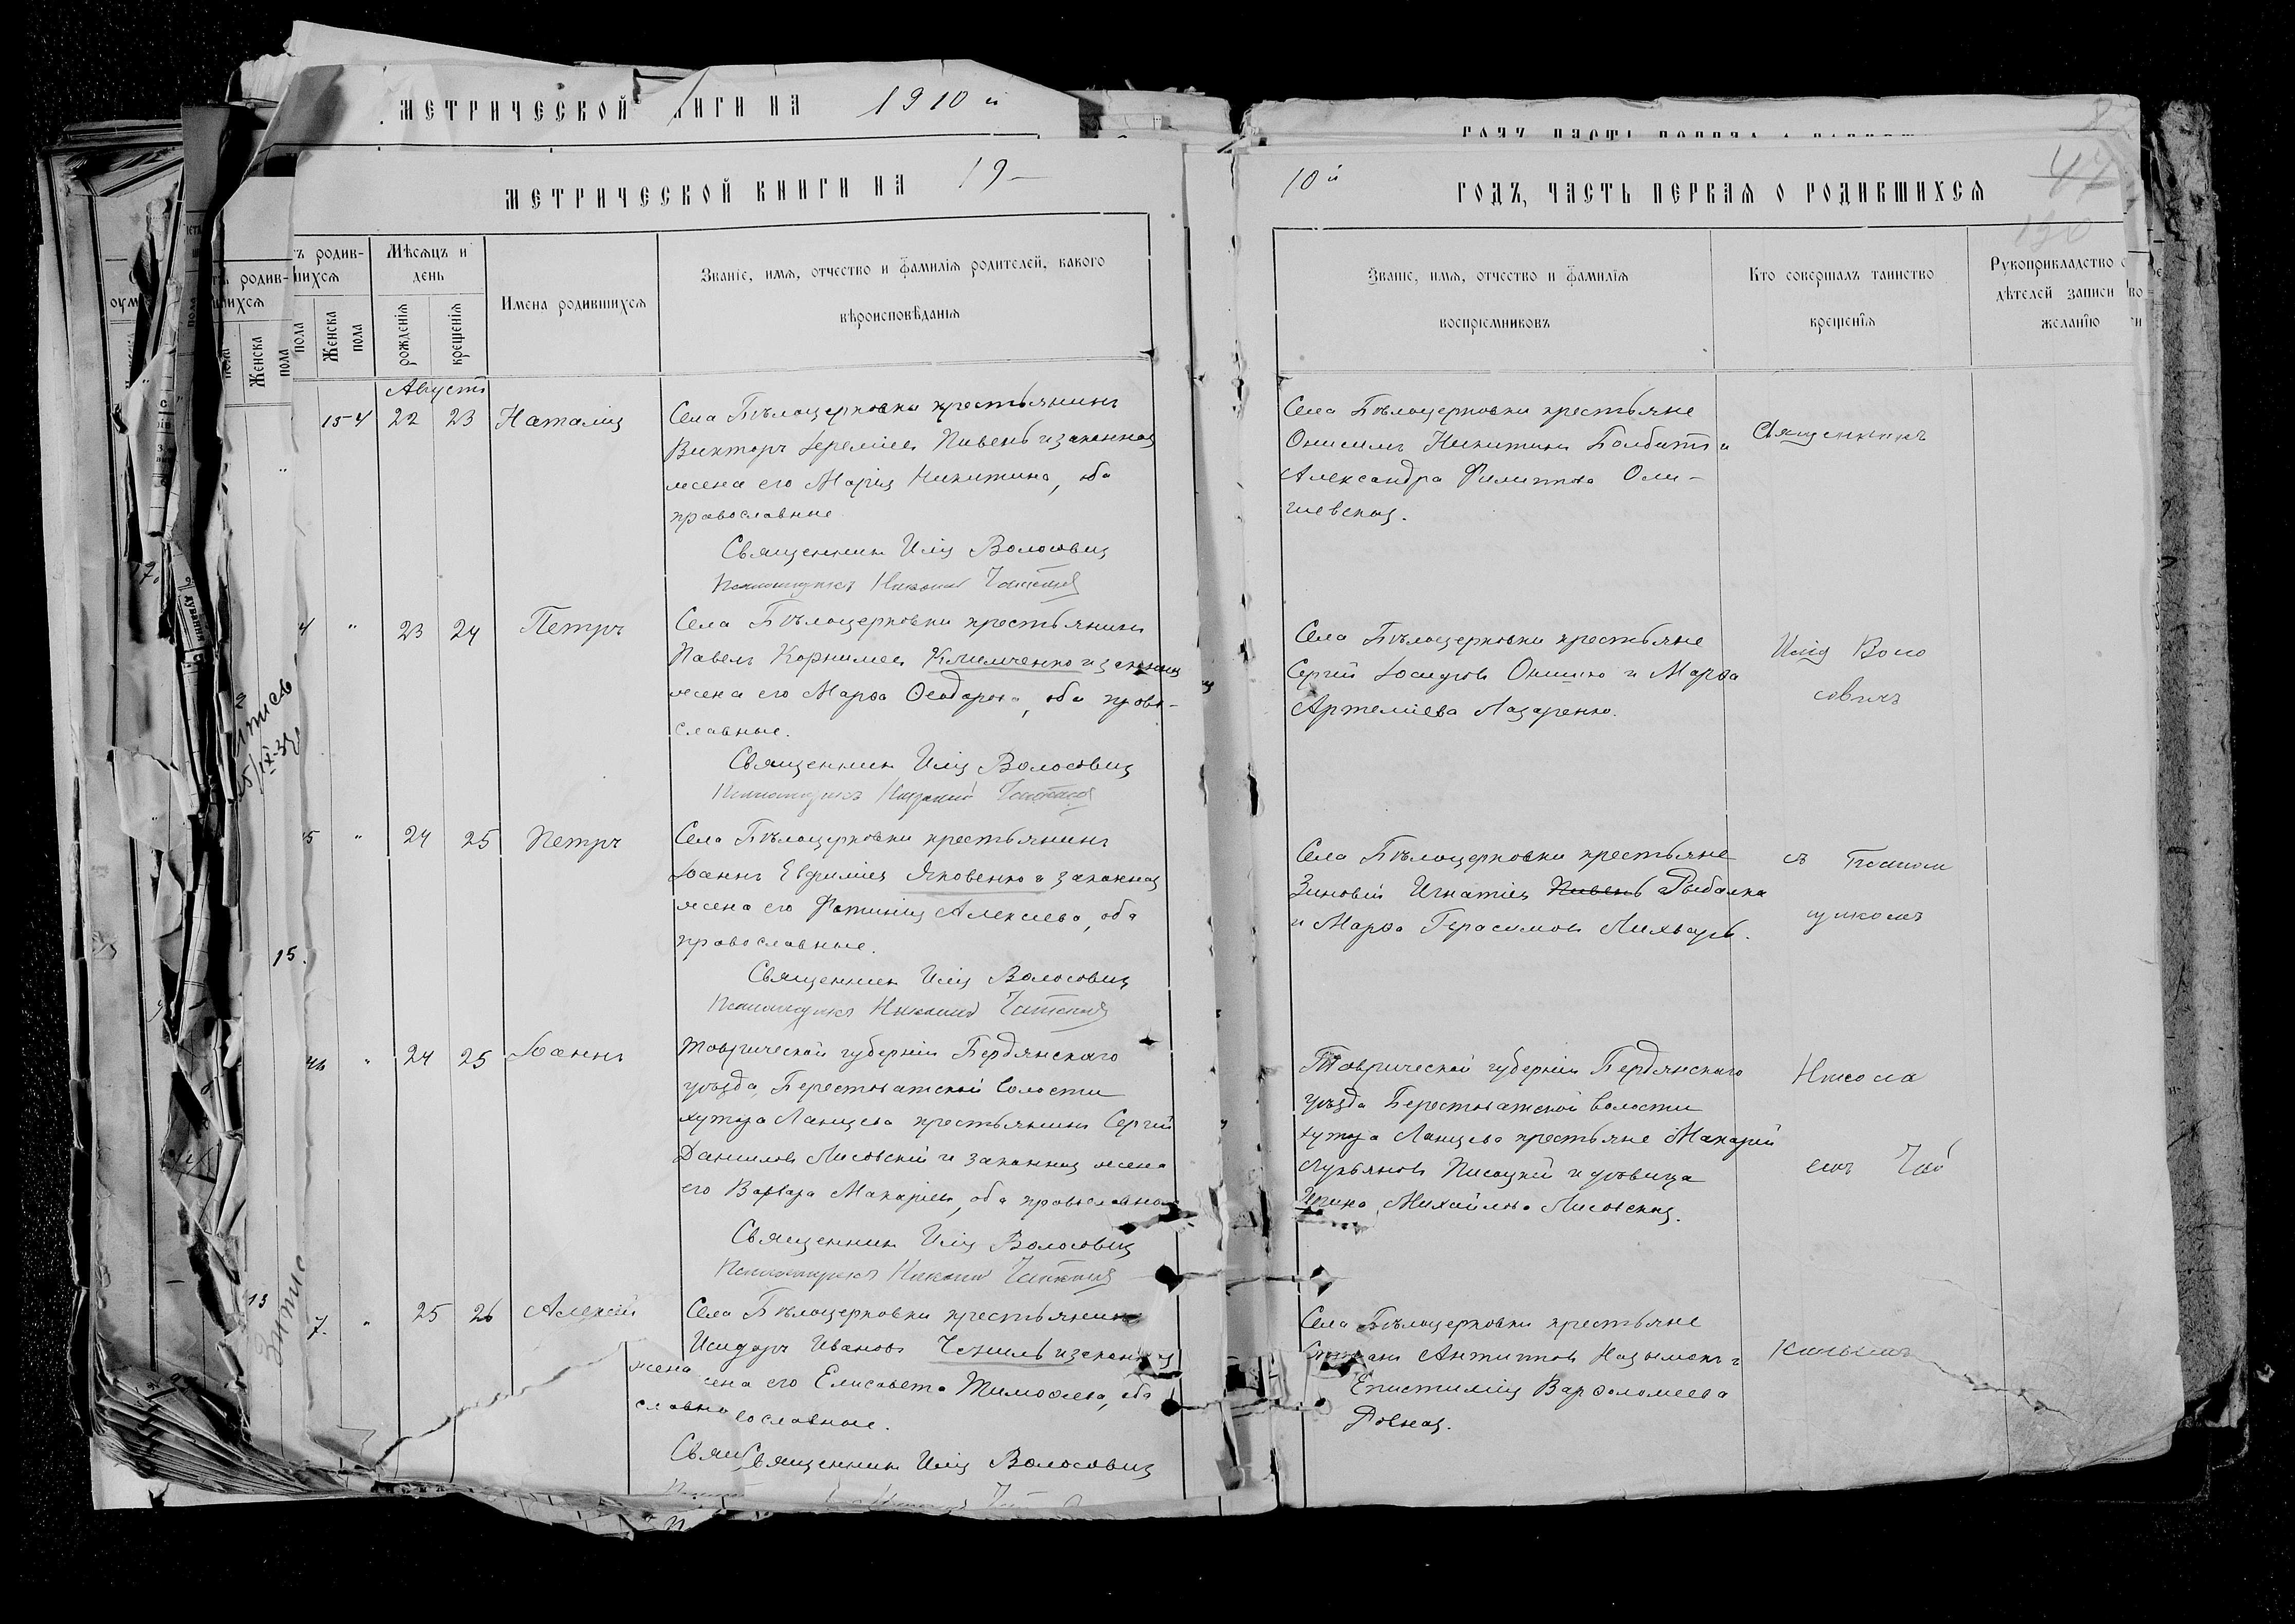 МЕТРИЧЕСКОЙ КНИГИ НА 1910 й
МЕТРИЧЕСКОЙ КНИГИ НА 19—
10 й ГОДЪ, ЧАСТЬ ПЕРВАЯ О РОДИВШИХСЯ
47
130
ъ родив-
шихся
Женска
пола
Мѣсяцъ и
день
рожденія
крещенія
Имена родившихся
Званіе, имя, отчество и фамилія родителей, какого
вѣроисповѣданія
Званіе, имя, отчество и фамилія
воспріемниковъ
Кто совершалъ таинство
крещенія
Рукоприкладство
дѣтелей записи
желанію
Августъ
154 22 23 Наталія
Села Бѣлоцерковки крестьянинъ
Викторъ Іереміевъ Пивень и законная
жена его Марія Никитина, оба
православные
Священникъ Илія Волосовичъ
Псаломщикъ Николай
Села Бѣлоцерковки крестьяне
Онисимъ Никитинъ Болбатъ и
Александра Филиппова Оли-
шевская.
Священникъ
4 " 23 24 Петръ
Села Бѣлоцерковки крестьянинъ
Павелъ Корниліевъ Климченко и законная
жена его Марѳа Ѳеодорова, оба право-
славные.
Священникъ Илія Волосовичъ
Псаломщикъ Николай
Села Бѣлоцерковки крестьяне
Сергій Іосифовъ Онишко и Марѳа
Артеміева Лазаренко.
Илія Воло
совичъ
5 " 24 25 Петръ
Села Бѣлоцерковки крестьянинъ
Іоаннъ Евфиміевъ Яковенко и законная
жена его Фотинія Алексіева, оба
православные.
Священникъ Илія Волосовичъ
Псаломщикъ Николай
Села Бѣлоцерковки крестьяне
Зиновій Игнатіевъ Пивень Рыбалка
и Марѳа Герасимова Лихварь.
съ Псалом
щикомъ
" 24 25 Іоаннъ
Таврической губерніи Бердянскаго
уѣзда, Берестоватской волости
хутора Ланцева крестьянинъ Сергій
Даниловъ Лисовскій и законная жена
его Варвара Макаріева, оба православные
Священникъ Илія Волосовичъ
Псаломщикъ Николай
Таврической губерніи Бердянскаго
уѣзда Берестоватской волости
хутора Ланцева крестьяне Макарій
Лукьяновъ Писацкій и дѣвица
Ирина Михайлова Лисовская.
Никола
емъ
7. " 25 26 Алексій
Села Бѣлоцерковки крестьянинъ
Исидоръ Ивановъ и законная
жена его Елисавета Тимоѳеева, оба
вославные.
Священникъ Илія Волосовичъ
Села Бѣлоцерковки крестьяне
Антиповъ и
Епистимія Варѳоломеева
Ровная.